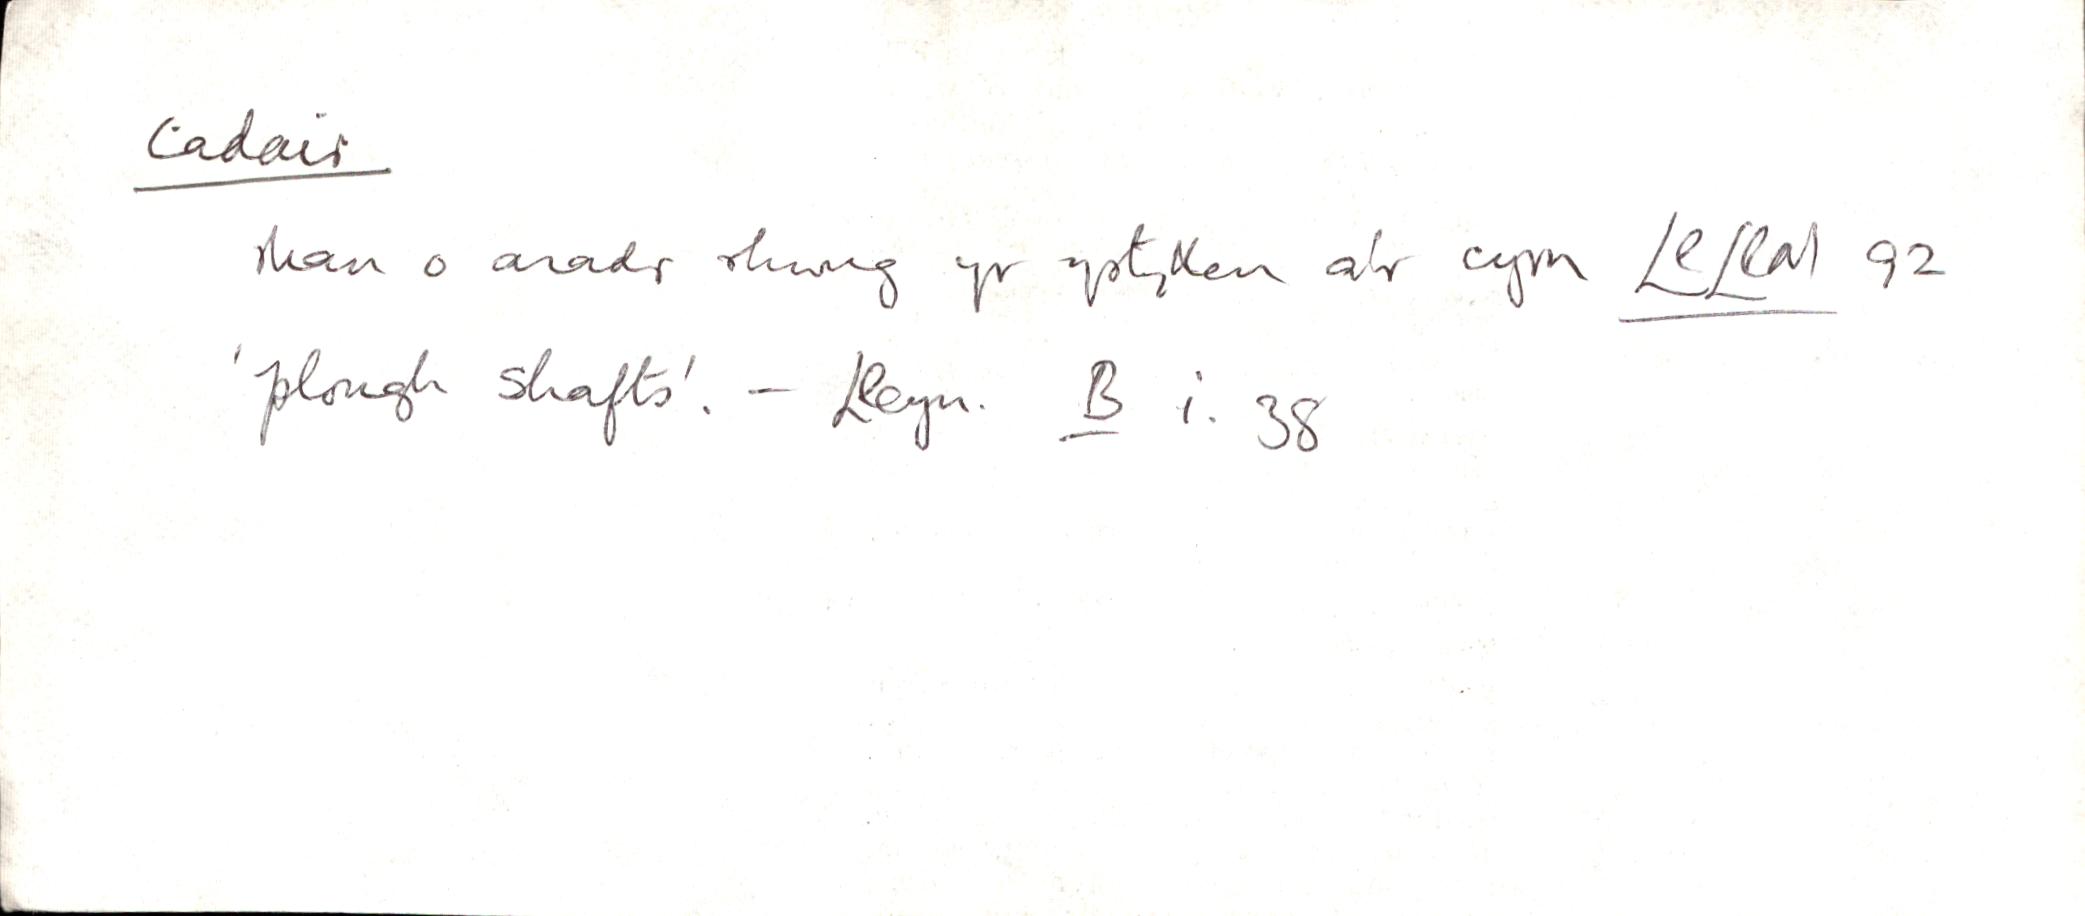 Cadair
rhan o aradr rhwng yr ystyllen a'r cyrn LlLlad 92
'plough shafts'. – Lleyn. B i. 38